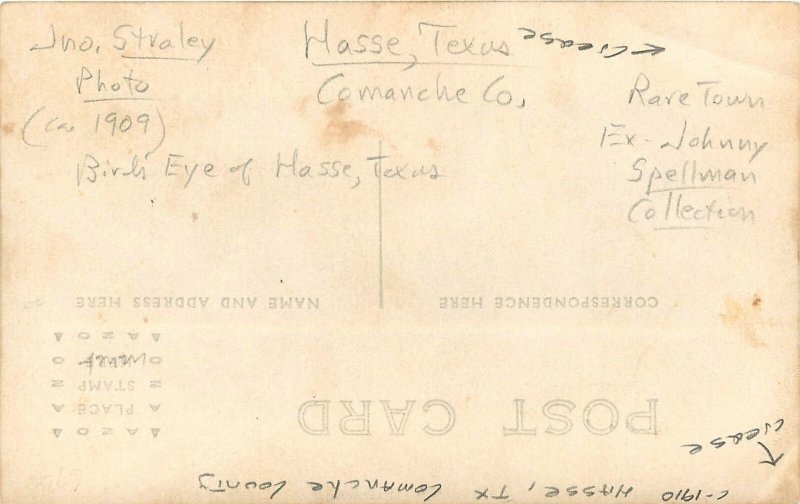 Jno. Straley
Photo
(ca 1909)
Hasse, Texas
Comanche Co.
← Crease
Rare Town
Ex-Johnny
Spellman
Collection
Bird's Eye of Hasse, Texas
CORRESPONDENCE HERE
NAME AND ADDRESS HERE
POST CARD
AZO
PLACE
STAMP
HERE
AZO
← Crease
C-1910 HASSE, TX Comanche County